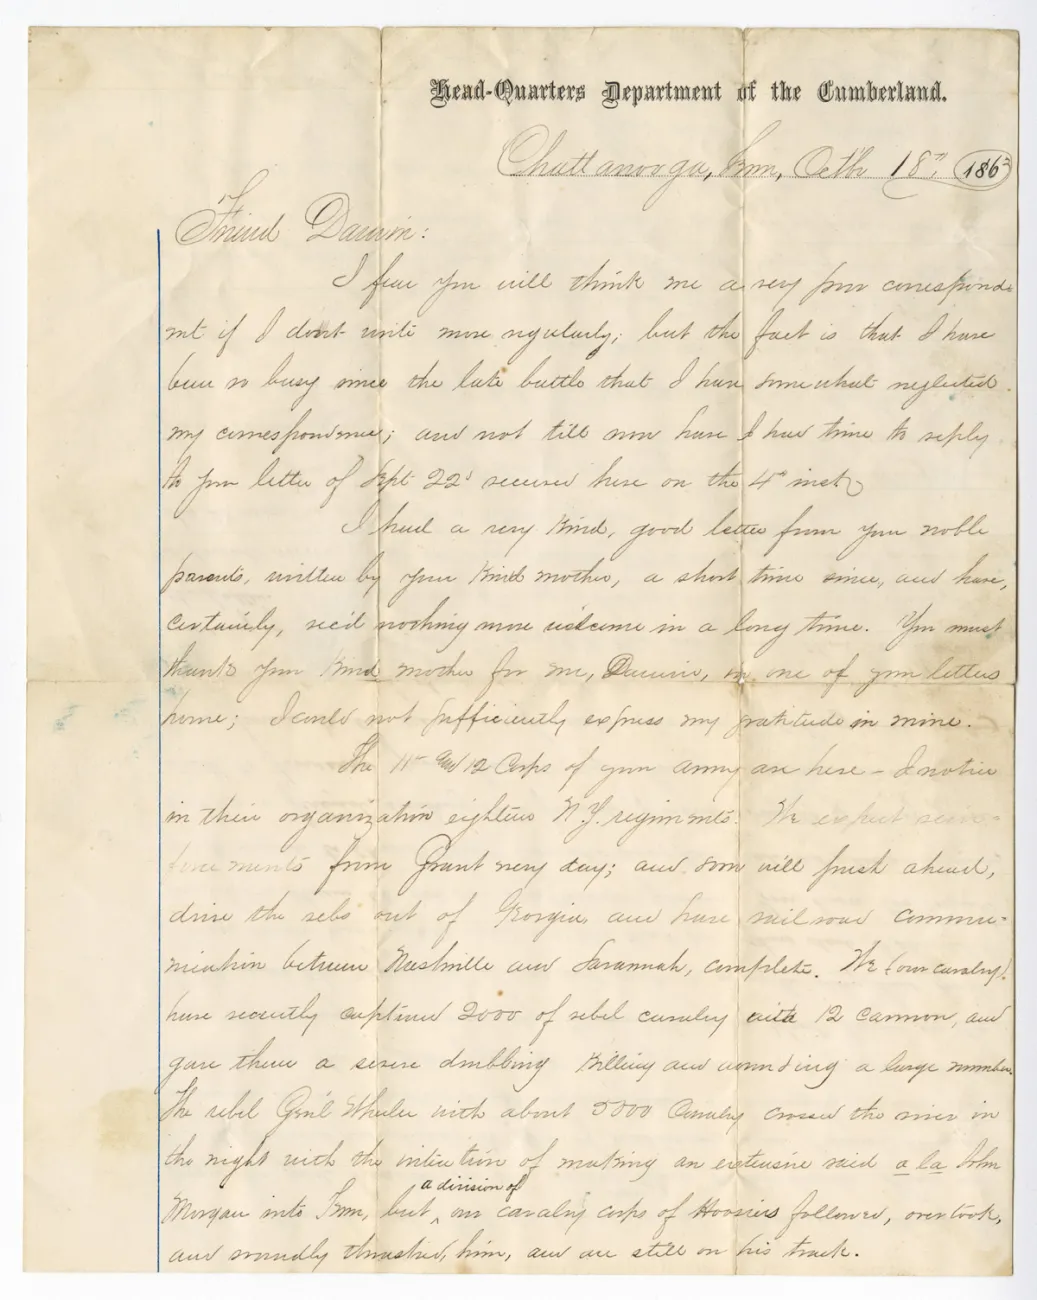 Head-Quarters Department of the Cumberland.
Chattanooga, Tenn, Octbr 18th, 1863
Friend Darwin:
I fear you will think me a very poor correspond-
ent if I don't write more regularly; but the fact is that I have
been so busy since the late battle that I have somewhat neglected
my correspondence; and not till now have I had time to reply
to your letter of Sept 22d received here on the 4th inst
I had a very kind, good letter from your noble
parents, written by your kind mother, a short time since, and have,
certainly, rec'd nothing more welcome in a long time. You must
thank your kind mother for me, Darwin, in one of your letters
home; I could not sufficiently express my gratitude in mine.
The 11th and 12 Corps of your army are here - I notice
in their organization eighteen N.Y. regiments. We expect rein-
forcements from Grant every day; and soon will push ahead,
drive the rebs out of Georgia, and have railroad commu-
nication between Nashville and Savannah, complete. We (our cavalry)
have recently captured 2000 of rebel cavalry with 12 cannon, and
gave them a severe drubbing killing and wounding a large number.
The rebel Gen'l Wheeler with about 5000 Cavalry crossed the river in
the night with the intention of making an extensive raid a la John
Morgan into Tenn, but ^ a division of our cavalry corps of Hoosiers followed, overtook,
and soundly thrashed, him, and are still on his track.